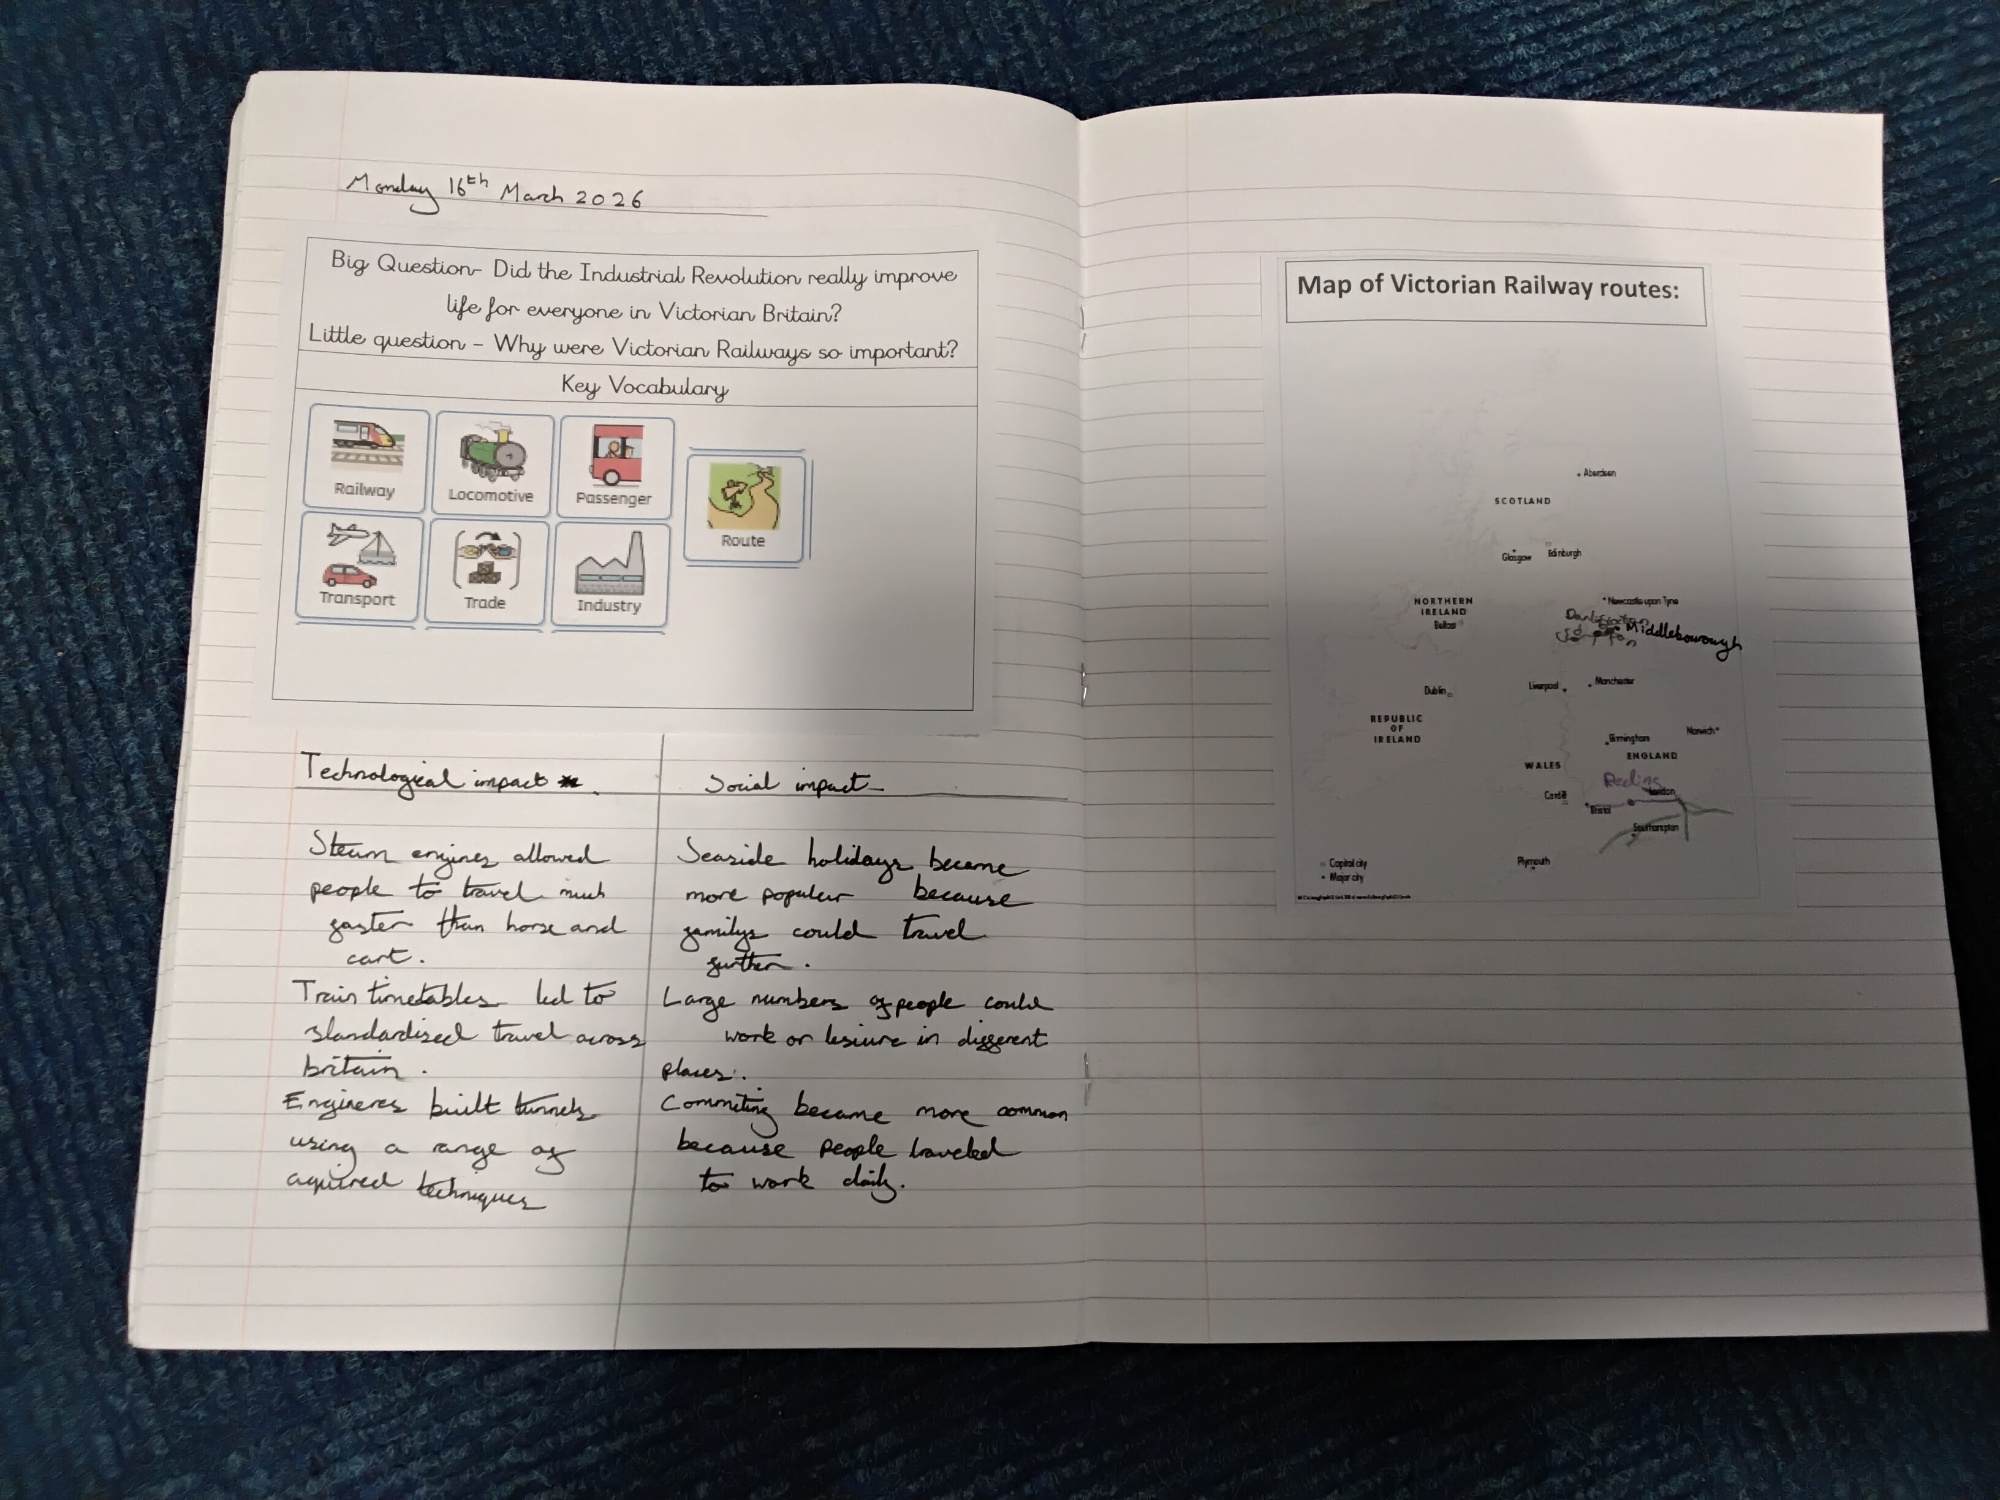 Monday 16th March 2026
Big Question- Did the Industrial Revolution really improve
life for everyone in Victorian Britain?
Little question - Why were Victorian Railways so important?
Key Vocabulary
Railway
Locomotive
Passenger
Route
Transport
Trade
Industry
Technological impact
Steam engines allowed
people to travel much
faster than horse and
cart.
Train timetables led to
standardised travel across
britain.
Engineres built tunnels
using a range of
aquired techniques
Social impact
Seaside holidays became
more popular because
familys could travel
further.
Large numbers of people could
work or lesiure in different
places.
Commiting became more common
because people traveled
to work daily.
Map of Victorian Railway routes:
Aberdeen
SCOTLAND
Glasgow
Edinburgh
NORTHERN
IRELAND
Belfast
Newcastle upon Tyne
Middlebourough
Dublin
Liverpool
Manchester
REPUBLIC
OF
IRELAND
Birmingham
Norwich
ENGLAND
WALES
Cardiff
London
Bristol
Southampton
Plymouth
Capital city
Major city